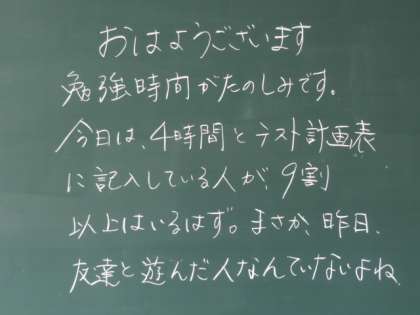 おはようございます
勉強時間がたのしみです。
今日は、4時間とテスト計画表
に記入している人が、9割
以上はいるはず。まさか、昨日、
友達と遊んだ人なんていないよね